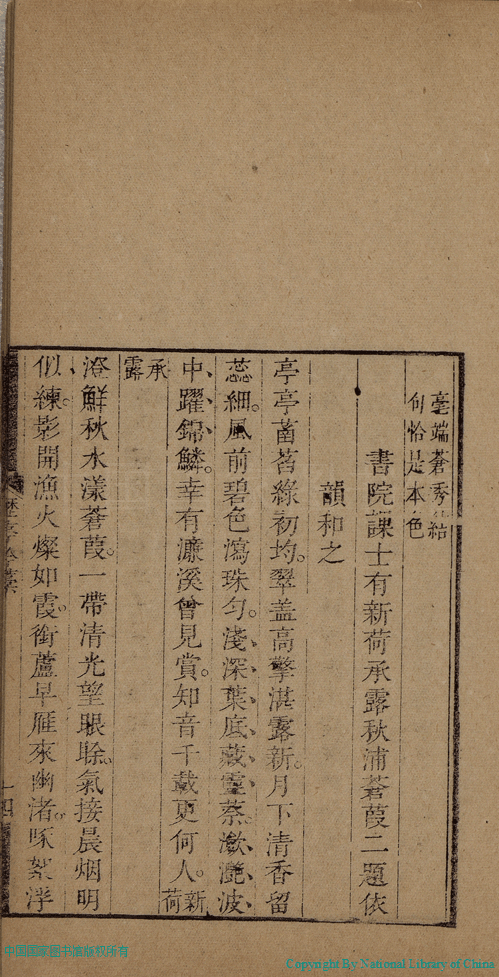 毫端蒼秀結
句恰是本色
書院課士有新荷承露秋浦蒼葭二題依
韻和之
亭亭菡萏綠初均。翠蓋高擎湛露新。月下清香留
蕊細。風前碧色瀉珠勻。淺深葉底藏靈蔡。瀲灧波
中躍錦鱗。幸有濂溪曾見賞。知音千載更何人。新荷
承露
澄鮮秋水漾蒼葭。一帶清光望眼賒。氣接晨烟明
似練。影開漁火燦如霞。銜蘆早雁來幽渚。啄絮浮
十四
中国国家图书馆版权所有
Copyright By National Library of China